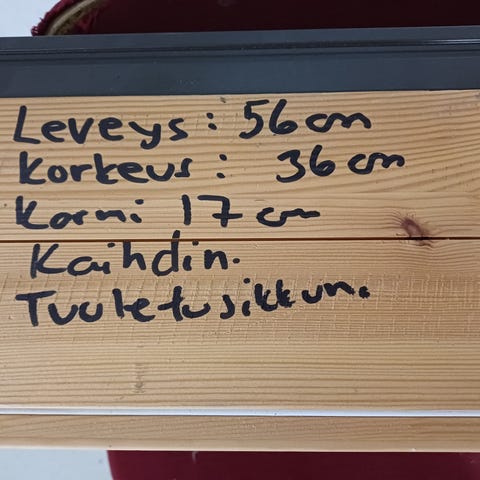 Leveys: 56 cm
Korkeus: 36 cm
Karmi 17 cm
Kaihdin.
Tuuletusikkun.